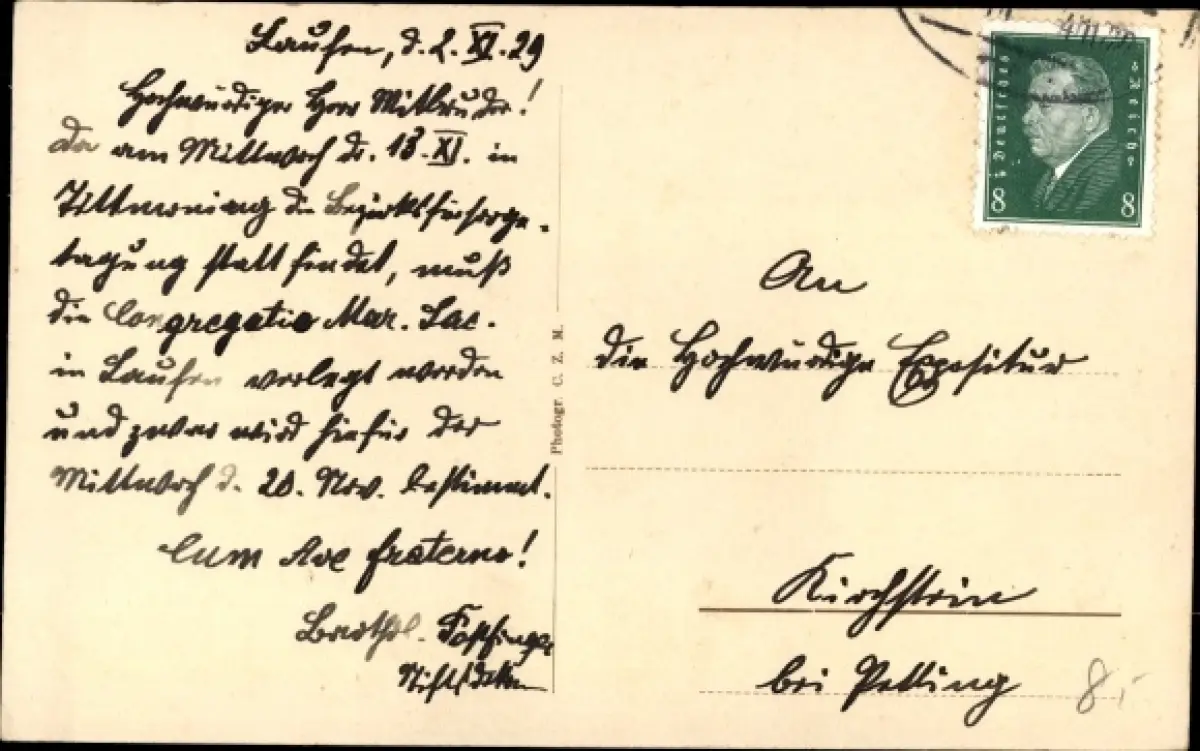 Laufen, d. 2. XI. 29
Hochwürdiger Herr Mitbruder!
Da am Mittwoch d. 13. XI. in
Tittmoning die Bezirksfürsorge-
tagung stattfindet, muß
die Congregatio Mar. Sac.
in Laufen verlegt werden
und zwar wird hiefür der
Mittwoch d. 20. Nov. bestimmt.
Cum Ave fraterno!
Barthol.
Stiftsdekan
Photogr. C. Z. M.
Deutsches Reich
8 8
An
die Hochwürdige Expositur
Kirchstein
bei Petting
8,-